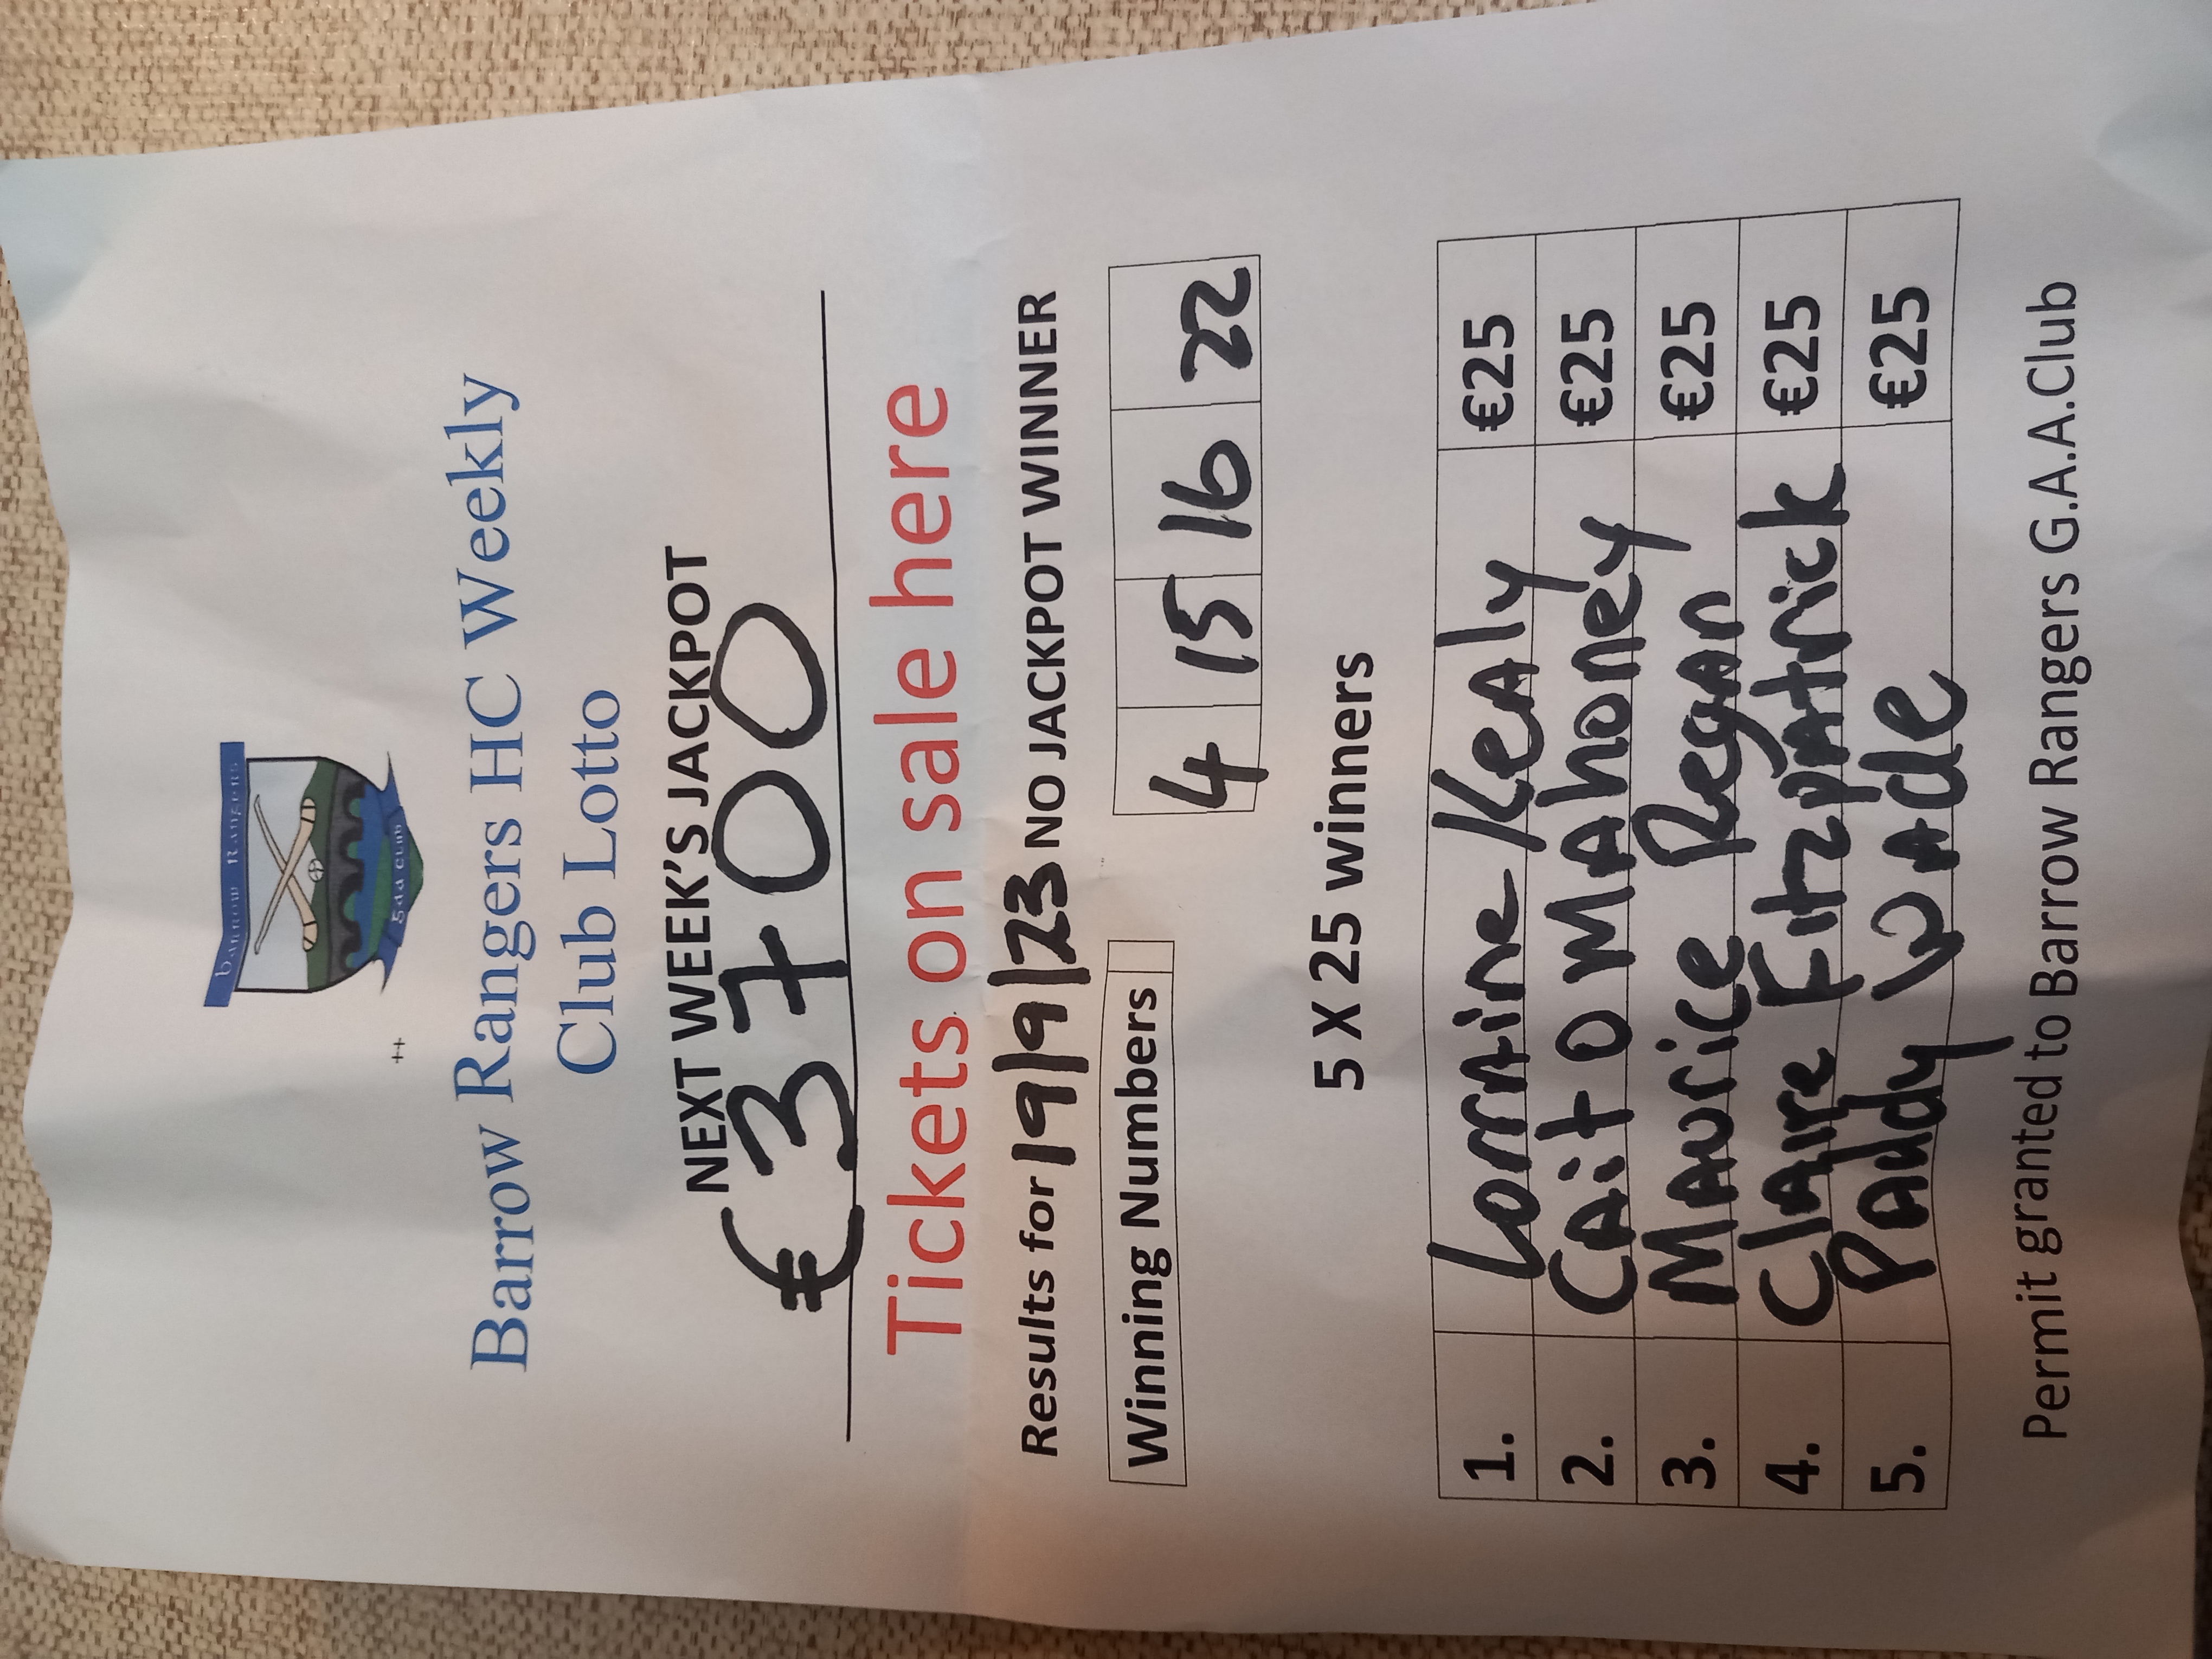 Barrow Rangers
gaa club
++
Barrow Rangers HC Weekly
Club Lotto
NEXT WEEK'S JACKPOT
€3700
Tickets on sale here
Results for 19/9/23 NO JACKPOT WINNER
Winning Numbers 4 15 16 22
5 X 25 winners
1. Lorraine Kealy €25
2. Cait O Mahoney €25
3. Maurice Regan €25
4. Claire Fitzpatrick €25
5. Paudy Wade €25
Permit granted to Barrow Rangers G.A.A.Club